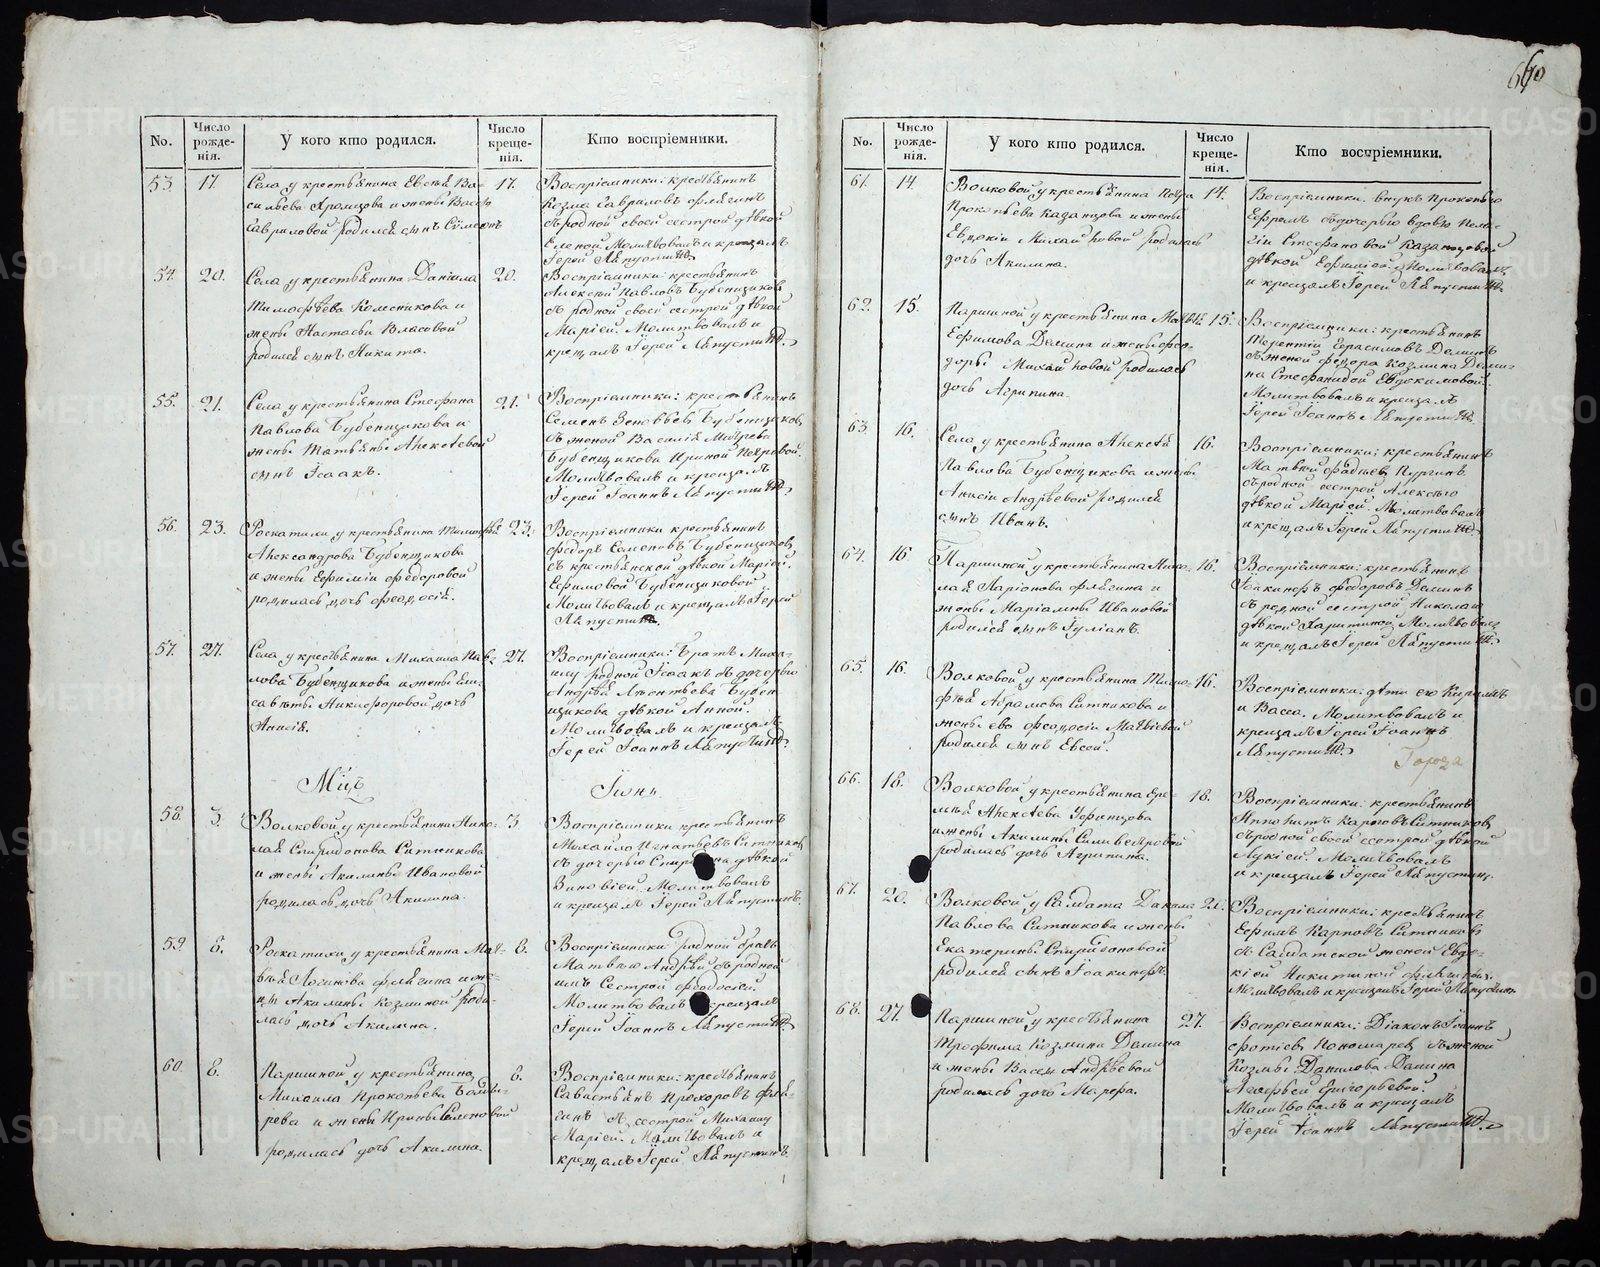 660
No.
Число рожденія.
У кого кто родился.
Число крещенія.
Кто воспріемники.
53.
17.
Села у крестьянина Евсѣя Ва-
сильева Храмцова и жены Вассы
Гавриловой родился сынъ Сѵмеонъ
17.
Воспріемники: крестьянинъ
Козма Гавриловъ
съ родной своей сестрой дѣвкой
Еленой. Молитвовалъ и крещалъ
Іерей Лапустинъ
54.
20.
Села у крестьянина Даніила
Тимофѣева Комстикова и
жены Настасьи Власовой
родился сынъ Никита.
20.
Воспріемники: крестьянинъ
Алексѣй Павловъ Бубенщиковъ
съ родной своей сестрой дѣвкой
Маріей. Молитвовалъ и
крещалъ Іерей Лапустинъ
55.
21.
Села у крестьянина Стефана
Павлова Бубенщикова и
жены Татьяны Алексѣевой
сынъ Ісаакъ.
21.
Воспріемники: крестьянинъ
Семенъ Зеновьевъ Бубенщиковъ
съ женой Василія
Бубенщикова Ириной Петровой.
Молитвовалъ и крещалъ
Іерей Іоаннъ Лапустинъ
56.
23.
Роскатили у крестьянина Тимофѣя
Александрова Бубенщикова
и жены Евфиміи Федоровой
родилась дочь Феодосія.
23.
Воспріемники крестьянинъ
Федоръ Семеновъ Бубенщиковъ
съ крестьянской дѣвкой Маріей
Ефимовой Бубенщиковой
Молитвовалъ и крещалъ Іерей
Лапустинъ.
57.
27.
Села у крестьянина Михаила Пав-
лова Бубенщикова и жены Ели-
саветы Никифоровой дочь
Анисія.
27.
Воспріемники: братъ Миха-
илу родной Ісаакъ съ дочерью
Андрѣя Леонтьева Бубен
щикова дѣвкой Анной.
Молитвовалъ и крещалъ
Іерей Іоаннъ Лапустинъ
Мцъ
Іюнь
58.
3.
Волковой у крестьянина Нико-
лая Спиридонова Ситникова
и жены Акилины Ивановой
родилась дочь Акилина.
3.
Воспріемники крестьянинъ
Михайло Игнатьевъ Ситниковъ
съ дочерью дѣвкой
Зиновіей. Молитвовалъ
и крещалъ Іерей Лапустинъ.
59
8.
Роскатихи у крестьянина Мат-
вѣя Логинова Флягина и же-
ны Акилины Козминой роди-
лась дочь Акилина.
8.
Воспріемники родной братъ
Матвѣю Андрѣй съ родной
имъ сестрой Феодосіей.
Молитвовалъ и крещалъ
Іерей Іоаннъ Лапустинъ
60.
8.
Паршиной у крестьянина
Михаила Прокопьева
и жены Ирины Семеновой
родилась дочь Акилина.
8.
Воспріемники: крестьянинъ
Савастьянъ Прохоровъ Фля-
гинъ съ сестрой Михаилу
Маріей. Молитвовалъ и
крещалъ Іерей Лапустинъ.
No.
Число рожденія.
У кого кто родился.
Число крещенія.
Кто воспріемники.
61.
14.
Волковой у крестьянина Петра
Прокопьева Казанцова и жены
Евдокіи Михайловой родилась
дочь Акилина.
14.
Воспріемники. внукъ Прокопью
Ефремъ съ дочерью вдовы Пела-
геи Стефановой Казанцовой
дѣвкой Евфиміей. Молитвовалъ
и крещалъ Іерей Лапустинъ
62.
15.
Паршиной у крестьянина Матвѣя
Ефимова Демина и жены Фео-
доры Михайловой родилась
дочь Агрипина.
15.
Воспріемники: крестьянинъ
Терентій Герасимовъ Деминъ
съ женой Федора Козмина Деми-
на Стефанидой Евдокимовой.
Молитвовалъ и крещалъ
Іерей Іоаннъ Лапустинъ
63.
16.
Села у крестьянина Алексѣя
Павлова Бубенщикова и жены
Анисіи Андрѣевой родился
сынъ Иванъ.
16.
Воспріемники: крестьянинъ
Матвѣй Пургинъ
съ родной сестрой Алексѣю
дѣвкой Маріей. Молитвовалъ
и крещалъ Іерей Лапустинъ
64.
16
Паршиной у крестьянина Нико-
лая Ларіонова Флягина и
жены Маріамны Ивановой
родился сынъ Іуліанъ.
16.
Воспріемники: крестьянинъ
Іоакинфъ Федоровъ Деминъ
съ родной сестрой Николаю
дѣвкой Харитиной. Молитвовалъ
и крещалъ Іерей Лапустинъ
65.
16.
Волковой у крестьянина Тимо-
фѣя Абрамова Ситникова и
жены ево Феодосіи Матвѣевой
родился сынъ Евсей.
16.
Воспріемники: дѣти ею Кирилъ
и Васса. Молитвовалъ и
крещалъ Іерей Іоаннъ
Лапустинъ
66.
18.
Волковой у крестьянина Ере-
мѣя Алексѣева Уфинцова
и жены Акилины Сильвестровой
родилась дочь Агрипина.
18.
Воспріемники: крестьянинъ
Ипполитъ Карповъ Ситниковъ
съ родной своей сестрой дѣвкой
Лукіей. Молитвовалъ
и крещалъ Іерей Лапустинъ.
67.
20.
Волковой у Салдата
Павлова Ситникова и жены
Екатерины Спиридоновой
родился сынъ Іоакинфъ.
Воспріемники: крестьянинъ
Ефимъ Карповъ Ситниковъ
съ Салдатской женой Евдо-
кіей Никитиной
Молитвовалъ и крещалъ Іерей Лапустинъ
68.
27.
Паршиной у крестьянина
Трофима Козмина Демина
и жены Вассы Андрѣевой
родилась дочь Марфа.
27.
Воспріемники: Діаконъ Іоаннъ
Фотіевъ Пономаревъ съ женой
Козмы Данилова Демина
Агафьей Григорьевой.
Молитвовалъ и крещалъ
Іерей Іоаннъ Лапустинъ.